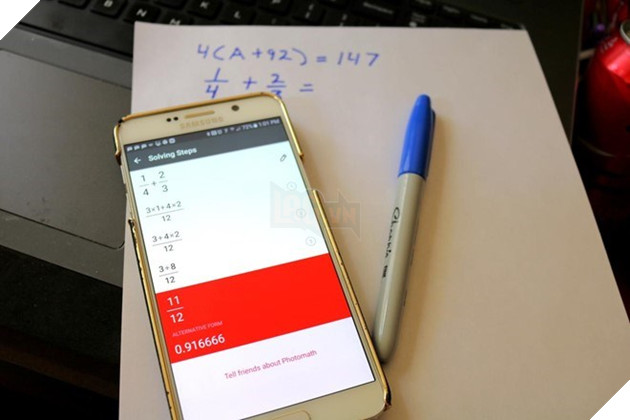 4(A+92) = 147
1/4 + 2/3 =
SAMSUNG
72% 1:01 PM
← Solving Steps
1/4 + 2/3
3×1+4×2/12
3+4×2/12
3+8/12
11/12
ALTERNATIVE FORM
0.916666
Tell friends about Photomath
Sharpie